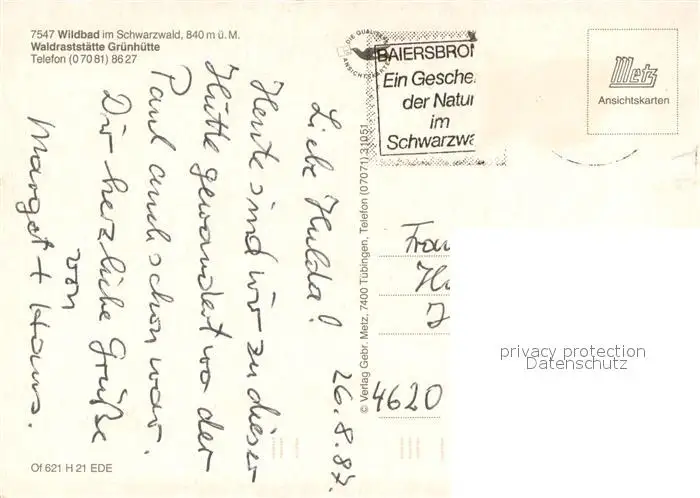 7547 Wildbad im Schwarzwald, 840 m ü. M.
Waldraststätte Grünhütte
Telefon (0 70 81) 86 27
26. 8. 87.
Liebe Hulda!
Heute sind wir zu dieser
Hütte gewandert wo der
Paul auch schon war.
Dir herzliche Grüße
von
Margot + Hans.
Of 621 H 21 EDE
© Verlag Gebr. Metz, 7400 Tübingen, Telefon (07071) 31051
DIE QUALITÄTS
ANSICHTSKARTE
BAIERSBRO
Ein Gesche
der Natur
im
Schwarzwa
Metz
Ansichtskarten
Frau
4620
privacy protection
Datenschutz